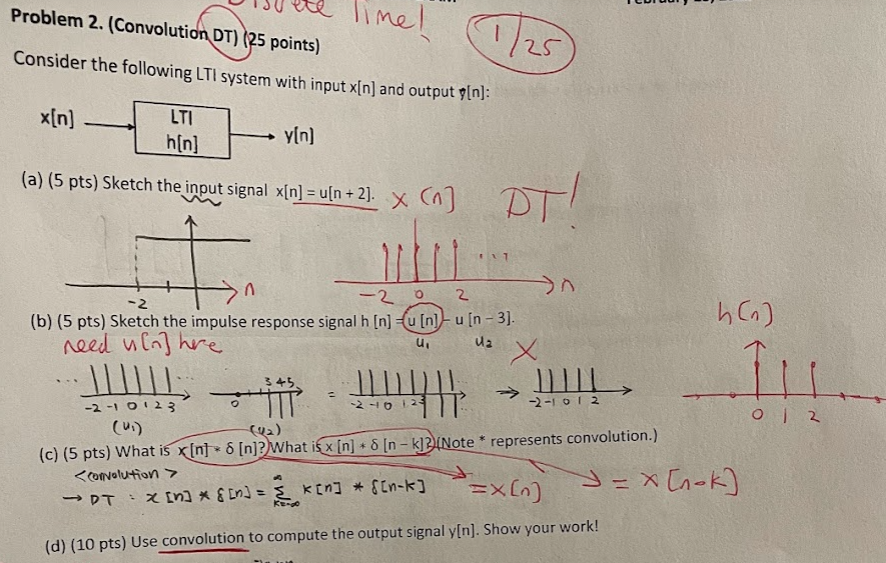 Discrete Time!
Problem 2. (Convolution DT) (25 points)
1/25
Consider the following LTI system with input x[n] and output y[n]:
x[n]
LTI
h[n]
y[n]
(a) (5 pts) Sketch the input signal x[n] = u[n + 2].
x[n] DT!
-2 n
-2 0 2 n
...
(b) (5 pts) Sketch the impulse response signal h [n] = u [n] - u [n - 3].
u₁ u₂ X
h[n]
need u[n] here
... -2 -1 0 1 2 3
(u₁)
0 3 4 5
(u₂)
= -2 -1 0 1 2 3
→ -2 -1 0 1 2
0 1 2
(c) (5 pts) What is x[n] * δ [n]? What is x [n] * δ [n - k]? (Note * represents convolution.)
<convolution>
→ DT : x [n] * δ[n] = Σ x[n] * δ[n-k]
k=-∞
∞
= x[n]
= x[n-k]
(d) (10 pts) Use convolution to compute the output signal y[n]. Show your work!